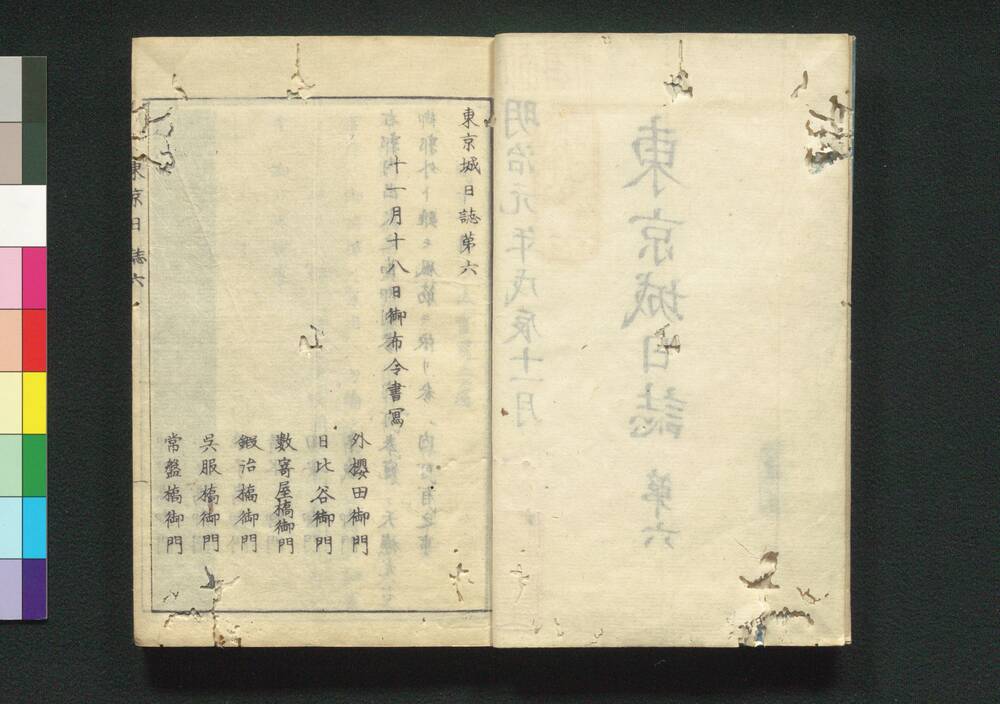 明治元年戊辰十一月
東京城日誌 第六
東京城日誌第六
十一月十八日御布令書寫
外櫻田御門
日比谷御門
數寄屋橋御門
鍛冶橋御門
呉服橋御門
常盤橋御門
東京日誌六